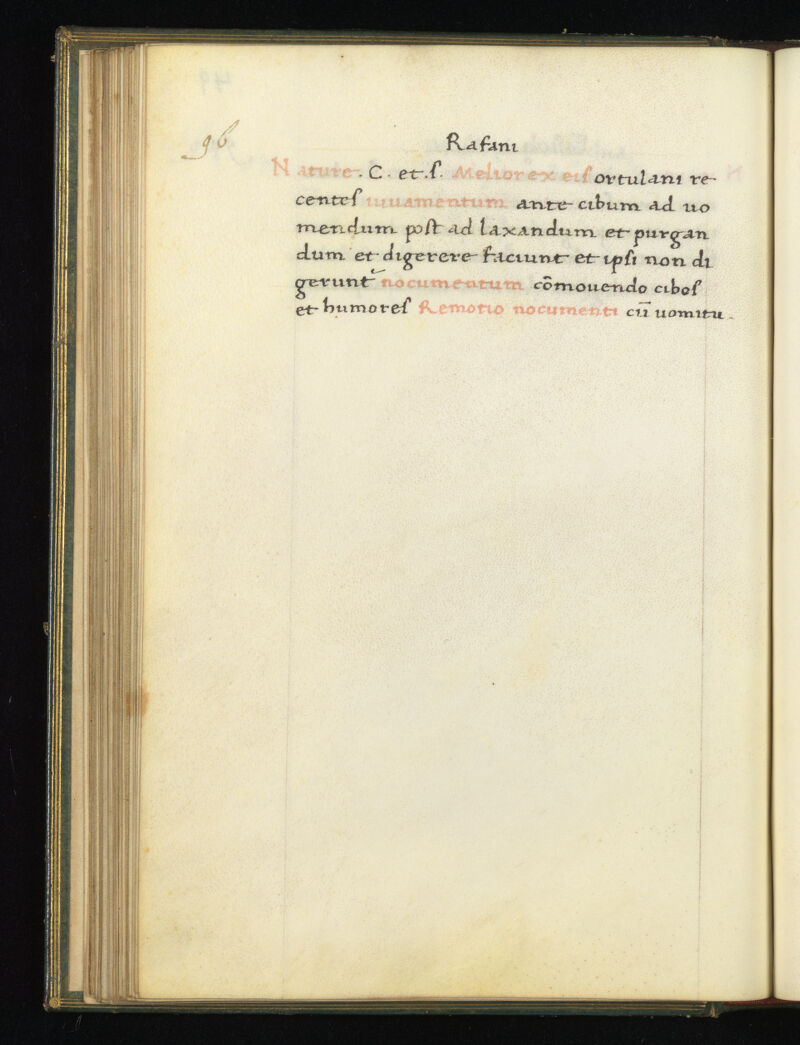 96
Rafani
Nature. C. et .ſ. Melior ex eiſ ortulani re-
centeſ iuuamentum ante cibum ad uo
mendum poſt ad laxandum et purgan
dum et digerere faciunt et ipſi non di
gerunt nocumentum cōmouendo ciboſ
et humoreſ Remotio nocumenti cū uomitu.